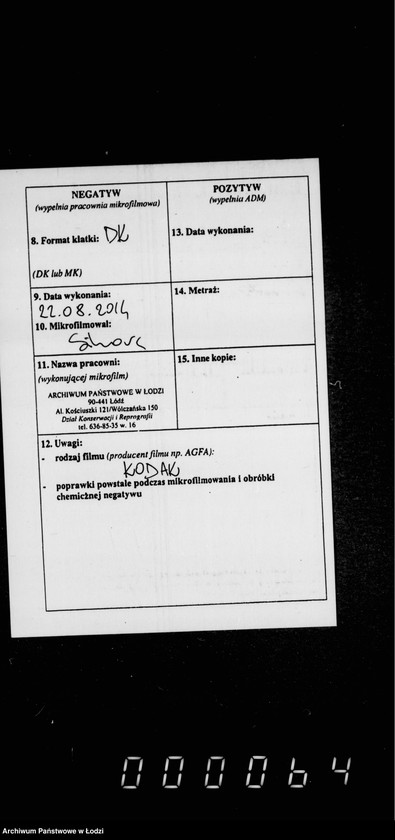 NEGATYW
(wypełnia pracownia mikrofilmowa)
8. Format klatki: DK
(DK lub MK)
POZYTYW
(wypełnia ADM)
13. Data wykonania:
9. Data wykonania:
22.08.2014
10. Mikrofilmował:
14. Metraż:
11. Nazwa pracowni:
(wykonującej mikrofilm)
ARCHIWUM PAŃSTWOWE W ŁODZI
90-441 Łódź
Al. Kościuszki 121/Wólczańska 150
Dział Konserwacji i Reprografii
tel. 636-85-35 w. 16
15. Inne kopie:
12. Uwagi:
- rodzaj filmu (producent filmu np. AGFA):
KODAK
- poprawki powstałe podczas mikrofilmowania i obróbki
chemicznej negatywu
000064
Archiwum Państwowe w Łodzi